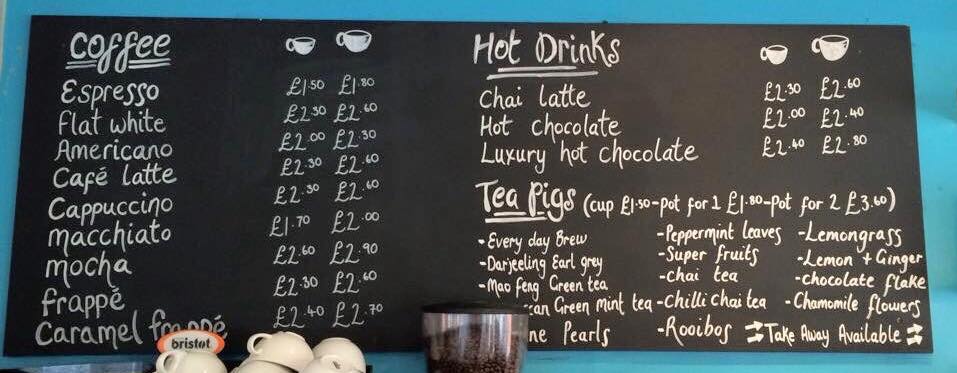 Coffee
Espresso £1.50 £1.80
Flat white £2.30 £2.60
Americano £2.00 £2.30
Café latte £2.30 £2.60
Cappuccino £2.30 £2.60
Macchiato £1.70 £2.00
mocha £2.60 £2.90
frappé £2.30 £2.60
Caramel frappé £2.40 £2.70
bristot
Hot Drinks
Chai latte £2.30 £2.60
Hot chocolate £2.00 £2.40
Luxury hot chocolate £2.40 £2.80
Tea Pigs (cup £1.50-pot for 1 £1.80-pot for 2 £3.60)
-Every day Brew
-Darjeeling Earl grey
-Mao feng Green tea
Green mint tea
Pearls
-Peppermint leaves
-Super fruits
-chai tea
-Chilli chai tea
-Rooibos
-Lemongrass
-Lemon + Ginger
-chocolate flake
-Chamomile flowers
Take Away Available